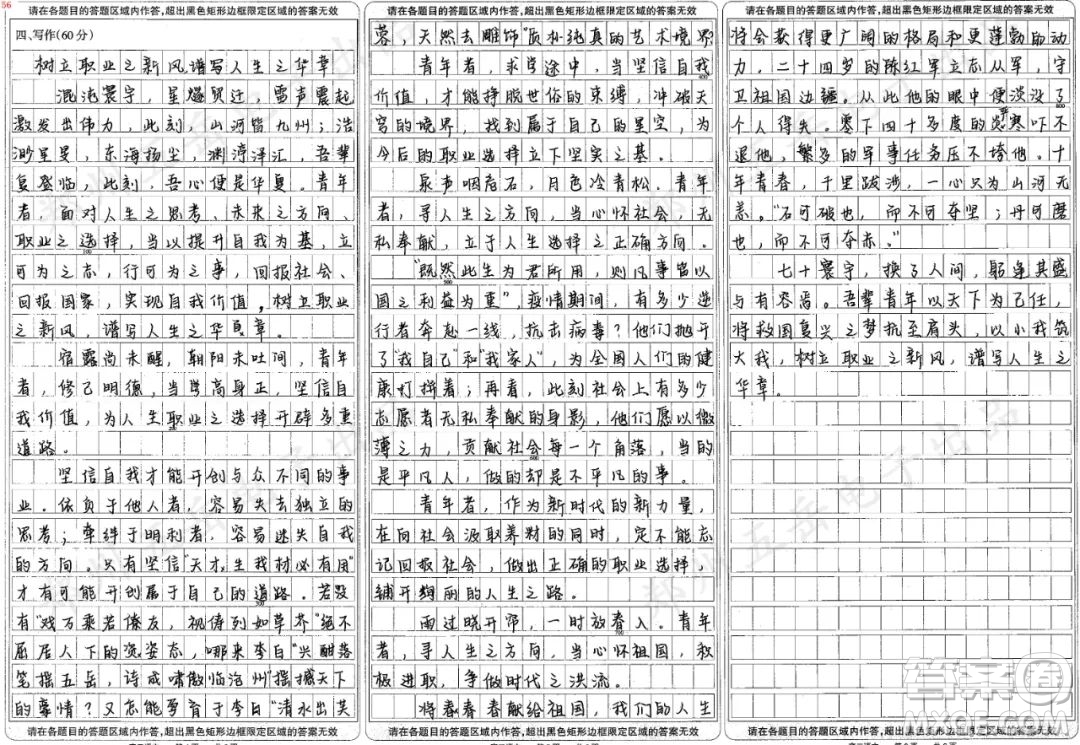 56
请在各题目的答题区域内作答,超出黑色矩形边框限定区域的答案无效
四、写作(60分)
树立职业之新风,谱写人生之华章
混沌寰宇,星爝贸迁,雷声震起
激发出伟力,此刻,山河皆九州;浩
渺星旻,东海扬尘,渊渟泽汇,吾辈
复盛临,此刻,吾心便是华夏。青年
者,面对人生之思考、未来之方向、
职业之选择,当以提升自我为基,立
可为之志,行可为之事,回报社会、
回报国家,实现自我价值。树立职业
之新风,谱写人生之华章。
宿露尚未醒,朝阳未吐间,青年
者,修己明德,当学高身正,坚信自
我价值,为人生职业之选择开辟多重
道路。
坚信自我才能开创与众不同的事
业。依负于他人者,容易失去独立的
思考;牵绊于明利者,容易迷失自我
的方向。只有坚信“天才生我材必有用”
才有可能开创属于自己的道路。若没
有“戏万乘若僚友,视俦列如草芥”绝不
屈居人下的姿态,哪来李白“兴酣落
笔摇五岳,诗成啸傲临沧州”摇撼天下
的豪情?又怎能孕育于李白“清水出芙
请在各题目的答题区域内作答,超出黑色矩形边框限定区域的答案无效
请在各题目的答题区域内作答,超出黑色矩形边框限定区域的答案无效
蓉,天然去雕饰”质朴纯真的艺术境界
青年者,求学途中,当坚信自我
价值,才能挣脱世俗的束缚,冲破天
穹的境界,找到属于自己的星空,为
今后的职业选择立下坚实之基。
泉声咽危石,月色冷青松。青年
者,寻人生之方向,当心怀社会,无
私奉献,立于人生选择之正确方向。
“既然此生为君所用,则凡事皆以
国之利益为重”,疫情期间,有多少逆
行者奔赴一线,抗击病毒?他们抛开
了“我自己”和“我家人”,为全国人们的健
康打拼着;再看,此刻社会上有多少
志愿者无私奉献的身影,他们愿以微
薄之力,贡献社会每一个角落,当的
是平凡人,做的却是不平凡的事。
青年者,作为新时代的新力量,
在向社会汲取养料的同时,定不能忘
记回报社会,做出正确的职业选择,
铺开绚丽的人生之路。
雨过晓开帘,一时放春入。青年
者,寻人生之方向,当心怀祖国,积
极进取,争做时代之洪流。
将春春春献给祖国,我们的人生
请在各题目的答题区域内作答,超出黑色矩形边框限定区域的答案无效
请在各题目的答题区域内作答,超出黑色矩形边框限定区域的答案无效
将会获得更广阔的格局和更蓬勃的动
力。二十四岁的陈红军立志从军,守
卫祖国边疆。从此他的眼中便淡没了
个人得失。零下四十多度的严寒吓不
退他,繁多的军事任务压不垮他。十
年青春,千里跋涉,一心只为山河无
恙。“石可破也,而不可夺坚;丹可磨
也,而不可夺赤。”
七十寰宇,换了人间,躬逢其盛
与有荣焉。吾辈青年以天下为己任,
将救国复兴之梦抗至肩头,以小我筑
大我,树立职业之新风,谱写人生之
华章。
请在各题目的答题区域内作答,超出黑色矩形边框限定区域的答案无效
答案圈
MXQE.COM